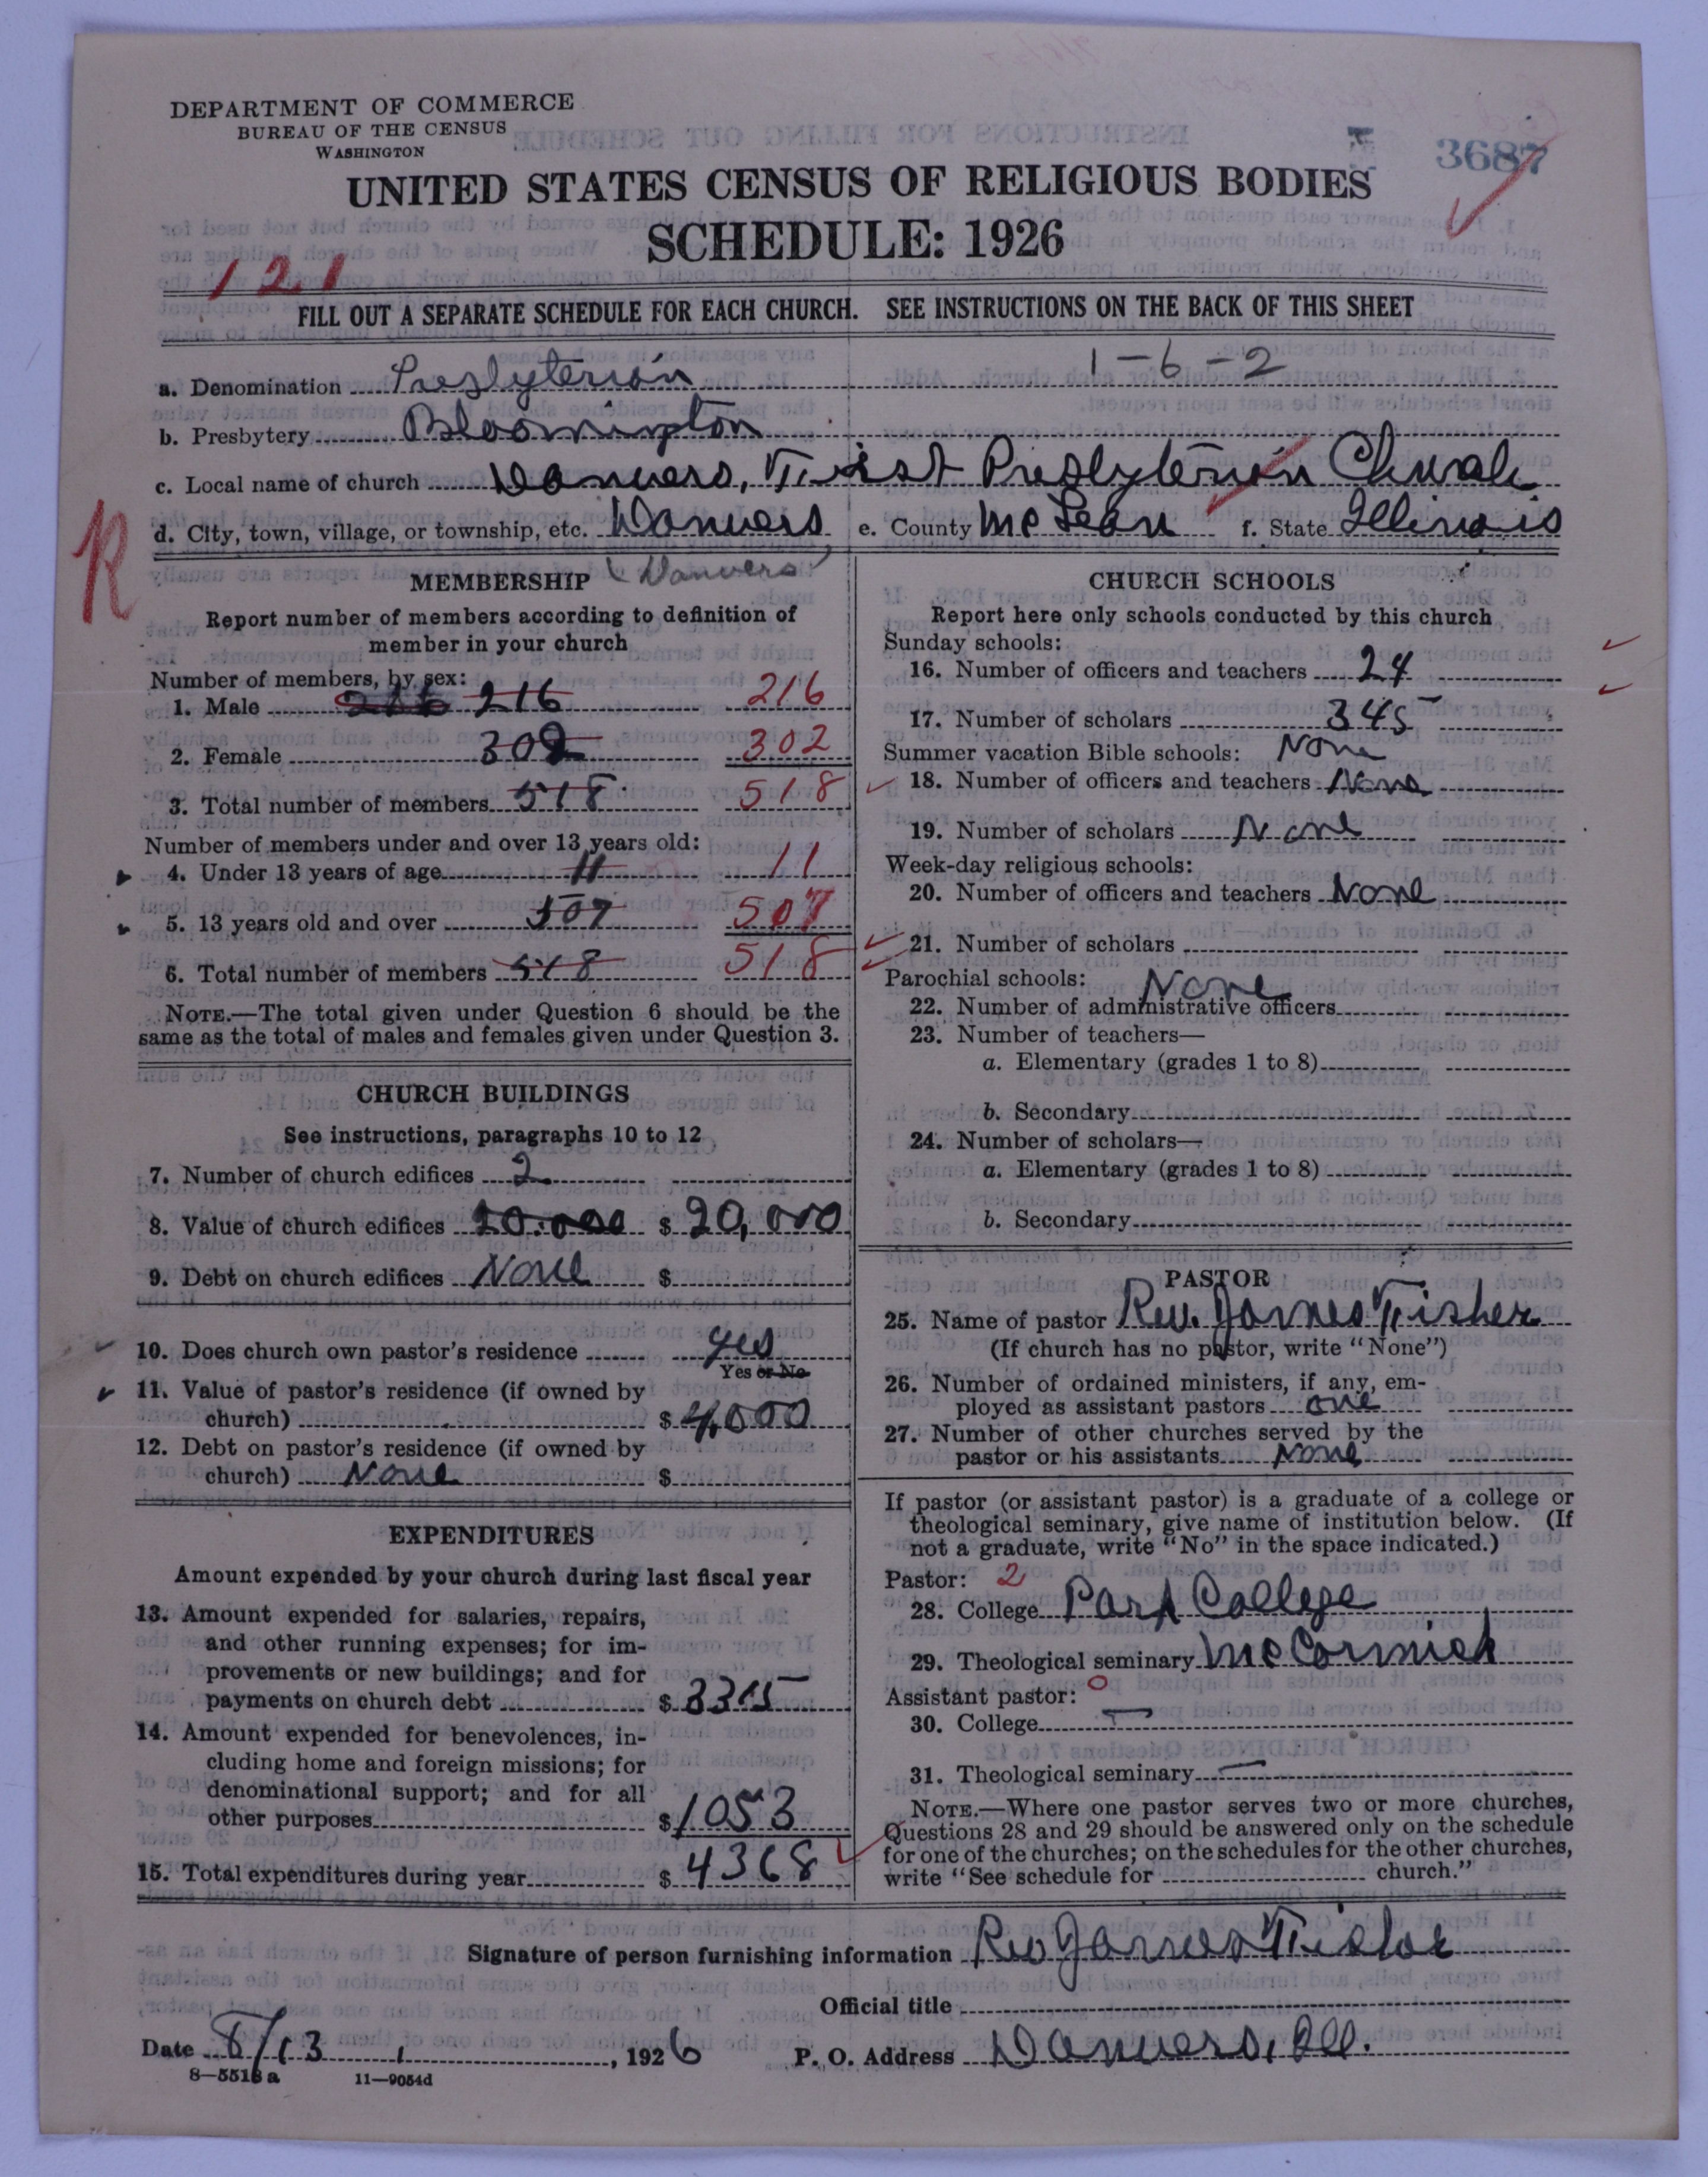 DEPARTMENT OF COMMERCE
BUREAU OF THE CENSUS
WASHINGTON
3687
UNITED STATES CENSUS OF RELIGIOUS BODIES
SCHEDULE: 1926
121
FILL OUT A SEPARATE SCHEDULE FOR EACH CHURCH. SEE INSTRUCTIONS ON THE BACK OF THIS SHEET
1-6-2
a. Denomination Presbyterian
b. Presbytery Bloomington
c. Local name of church Danvers, First Presbyterian Church
d. City, town, village, or township, etc. Danvers e. County McLean f. State Illinois
R
(Danvers)
MEMBERSHIP
Report number of members according to definition of
member in your church
Number of members, by sex:
1. Male 216 216
2. Female 302 302
3. Total number of members 518 518
Number of members under and over 13 years old:
4. Under 13 years of age 11 11
5. 13 years old and over 507 507
6. Total number of members 518 518
NOTE.—The total given under Question 6 should be the
same as the total of males and females given under Question 3.
CHURCH BUILDINGS
See instructions, paragraphs 10 to 12
7. Number of church edifices 2
8. Value of church edifices 20.000 $ 20,000
9. Debt on church edifices None $
10. Does church own pastor's residence yes
Yes or No
11. Value of pastor's residence (if owned by
church) $ 4,000
12. Debt on pastor's residence (if owned by
church) None $
EXPENDITURES
Amount expended by your church during last fiscal year
13. Amount expended for salaries, repairs,
and other running expenses; for im-
provements or new buildings; and for
payments on church debt $ 3315
14. Amount expended for benevolences, in-
cluding home and foreign missions; for
denominational support; and for all
other purposes $ 1053
15. Total expenditures during year $ 4368
CHURCH SCHOOLS
Report here only schools conducted by this church
Sunday schools:
16. Number of officers and teachers 24
17. Number of scholars 345
Summer vacation Bible schools: None
18. Number of officers and teachers None
19. Number of scholars None
Week-day religious schools:
20. Number of officers and teachers None
21. Number of scholars
Parochial schools: None
22. Number of administrative officers
23. Number of teachers—
a. Elementary (grades 1 to 8)
b. Secondary
24. Number of scholars—
a. Elementary (grades 1 to 8)
b. Secondary
PASTOR
25. Name of pastor Rev. James Fisher
(If church has no pastor, write "None")
26. Number of ordained ministers, if any, em-
ployed as assistant pastors one
27. Number of other churches served by the
pastor or his assistants None
If pastor (or assistant pastor) is a graduate of a college or
theological seminary, give name of institution below. (If
not a graduate, write "No" in the space indicated.)
Pastor: 2
28. College Park College
29. Theological seminary McCormick
Assistant pastor: 0
30. College —
31. Theological seminary —
NOTE.—Where one pastor serves two or more churches,
Questions 28 and 29 should be answered only on the schedule
for one of the churches; on the schedules for the other churches,
write "See schedule for church."
Signature of person furnishing information Rev James Fisher
Official title
Date 8/13, 1926 P. O. Address Danvers, Ill.
8—5518a 11—9054d